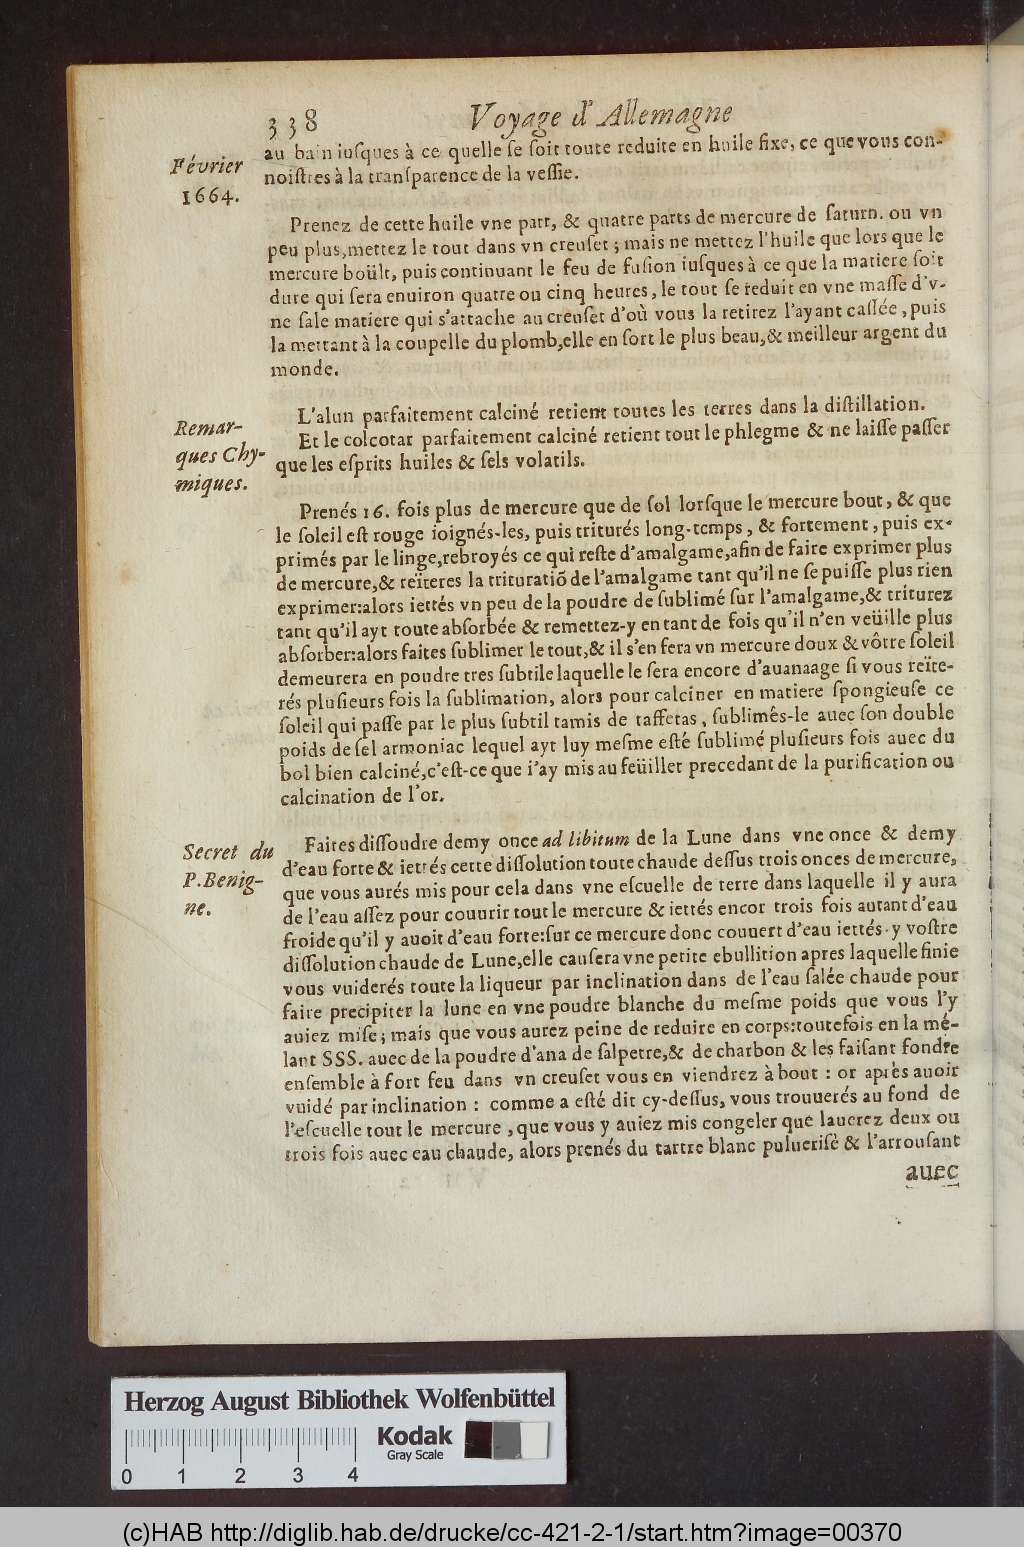 338 Voyage d'Allemagne
Février
1664.
au bain iuſques à ce quelle ſe ſoit toute reduite en huile fixe, ce que vous con-
noiſtres à la tranſparence de la veſſie.
Prenez de cette huile vne part, & quatre parts de mercure de ſaturn. ou vn
peu plus, mettez le tout dans vn creuſet; mais ne mettez l'huile que lors que le
mercure boült, puis continuant le feu de fuſion iuſques à ce que la matiere ſoit
dure qui ſera enuiron quatre ou cinq heures, le tout ſe reduit en vne maſſe d'v-
ne ſale matiere qui s'attache au creuſet d'où vous la retirez l'ayant caſſée, puis
la mettant à la coupelle du plomb, elle en ſort le plus beau, & meilleur argent du
monde.
Remar-
ques Chy-
miques.
L'alun parfaitement calciné retient toutes les terres dans la diſtillation.
Et le colcotar parfaitement calciné retient tout le phlegme & ne laiſſe paſſer
que les eſprits huiles & ſels volatils.
Prenés 16. fois plus de mercure que de ſol lorſque le mercure bout, & que
le ſoleil eſt rouge ioignés-les, puis triturés long-temps, & fortement, puis ex-
primés par le linge, rebroyés ce qui reſte d'amalgame, afin de faire exprimer plus
de mercure, & reïteres la trituratiõ de l'amalgame tant qu'il ne ſe puiſſe plus rien
exprimer: alors iettés vn peu de la poudre de ſublimé ſur l'amalgame, & triturez
tant qu'il ayt toute abſorbée & remettez-y en tant de fois qu'il n'en veüille plus
abſorber: alors faites ſublimer le tout, & il s'en fera vn mercure doux & vôtre ſoleil
demeurera en poudre tres ſubtile laquelle le ſera encore d'auanaage ſi vous reïte-
rés pluſieurs fois la ſublimation, alors pour calciner en matiere ſpongieuſe ce
ſoleil qui paſſe par le plus ſubtil tamis de taffetas, ſublimés-le auec ſon double
poids de ſel armoniac lequel ayt luy meſme eſté ſublimé pluſieurs fois auec du
bol bien calciné, c'eſt-ce que i'ay mis au feüillet precedant de la purification ou
calcination de l'or.
Secret du
P. Benig-
ne.
Faites diſſoudre demy once ad libitum de la Lune dans vne once & demy
d'eau forte & iettés cette diſſolution toute chaude deſſus trois onces de mercure,
que vous aurés mis pour cela dans vne eſcuelle de terre dans laquelle il y aura
de l'eau aſſez pour couurir tout le mercure & iettés encor trois fois autant d'eau
froide qu'il y auoit d'eau forte: ſur ce mercure donc couuert d'eau iettés-y voſtre
diſſolution chaude de Lune, elle cauſera vne petite ebullition apres laquelle finie
vous vuiderés toute la liqueur par inclination dans de l'eau ſalée chaude pour
faire precipiter la lune en vne poudre blanche du meſme poids que vous l'y
auiez miſe; mais que vous aurez peine de reduire en corps: toutefois en la mé-
lant SSS. auec de la poudre d'ana de ſalpetre, & de charbon & les faiſant fondre
enſemble à fort feu dans vn creuſet vous en viendrez à bout: or après auoir
vuidé par inclination: comme a eſté dit cy-deſſus, vous trouuerés au fond de
l'eſcuelle tout le mercure, que vous y auiez mis congeler que lauerez deux ou
trois fois auec eau chaude, alors prenés du tartre blanc puluerisè & l'arrouſant
auec
Herzog August Bibliothek Wolfenbüttel
Kodak
Gray Scale
0 1 2 3 4
(c)HAB http://diglib.hab.de/drucke/cc-421-2-1/start.htm?image=00370